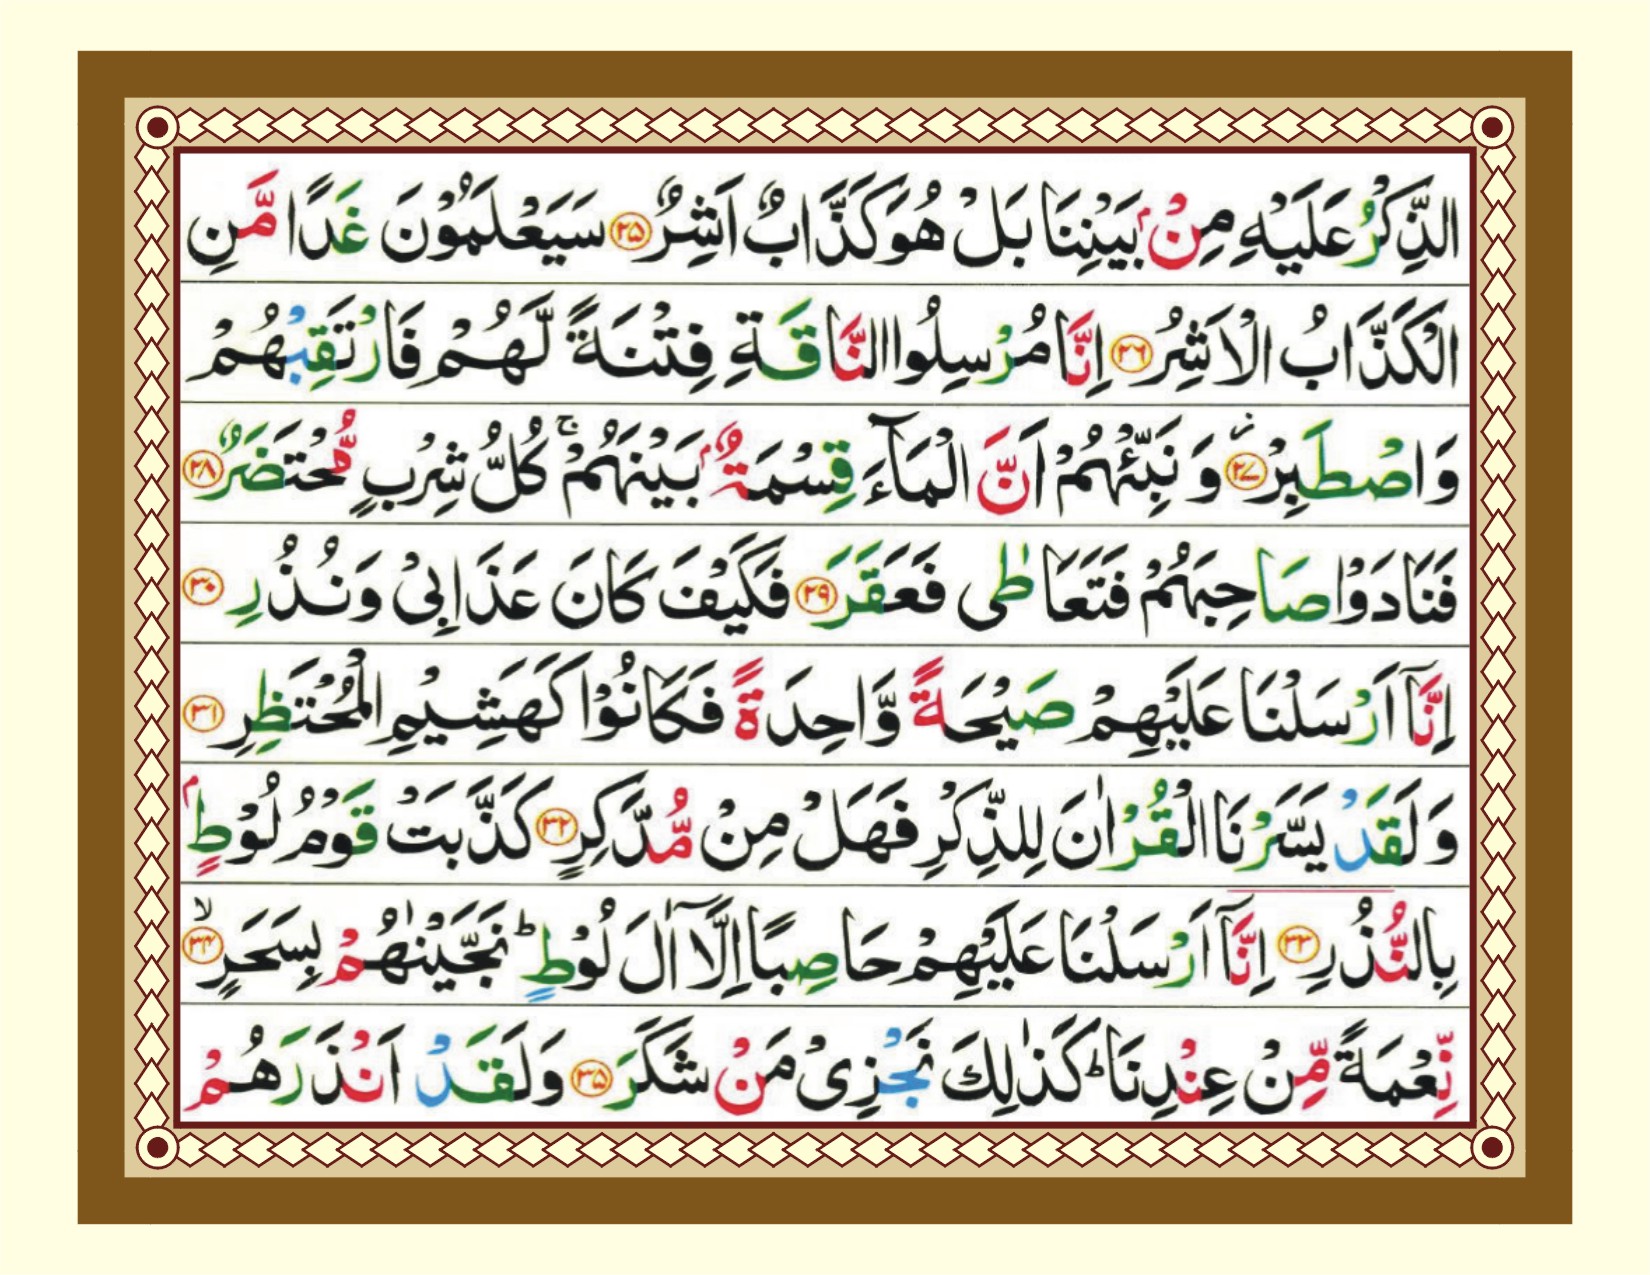 الذِّكْرُ عَلَيْهِ مِنْۢ بَيْنِنَا بَلْ هُوَ كَذَّابٌ اَشِرٌ ۝۲۵ سَيَعْلَمُوْنَ غَدًا مَّنِ
الْكَذَّابُ الْاَشِرُ ۝۲۶ اِنَّا مُرْسِلُوا النَّاقَةِ فِتْنَةً لَّهُمْ فَارْتَقِبْهُمْ
وَاصْطَبِرْ ۝۲۷ وَنَبِّئْهُمْ اَنَّ الْمَآءَ قِسْمَةٌۢ بَيْنَهُمْ ۚ كُلُّ شِرْبٍ مُّحْتَضَرٌ ۝۲۸
فَنَادَوْا صَاحِبَهُمْ فَتَعَاطٰى فَعَقَرَ ۝۲۹ فَكَيْفَ كَانَ عَذَابِىْ وَنُذُرِ ۝۳۰
اِنَّاۤ اَرْسَلْنَا عَلَيْهِمْ صَيْحَةً وَّاحِدَةً فَكَانُوْا كَهَشِيْمِ الْمُحْتَظِرِ ۝۳۱
وَلَقَدْ يَسَّرْنَا الْقُرْاٰنَ لِلذِّكْرِ فَهَلْ مِنْ مُّدَّكِرٍ ۝۳۲ كَذَّبَتْ قَوْمُ لُوْطٍۭ
بِالنُّذُرِ ۝۳۳ اِنَّاۤ اَرْسَلْنَا عَلَيْهِمْ حَاصِبًا اِلَّاۤ اٰلَ لُوْطٍ ؕ نَجَّيْنٰهُمْ بِسَحَرٍ ۙ۝۳۴
نِّعْمَةً مِّنْ عِنْدِنَا ؕ كَذٰلِكَ نَجْزِىْ مَنْ شَكَرَ ۝۳۵ وَلَقَدْ اَنْذَرَهُمْ